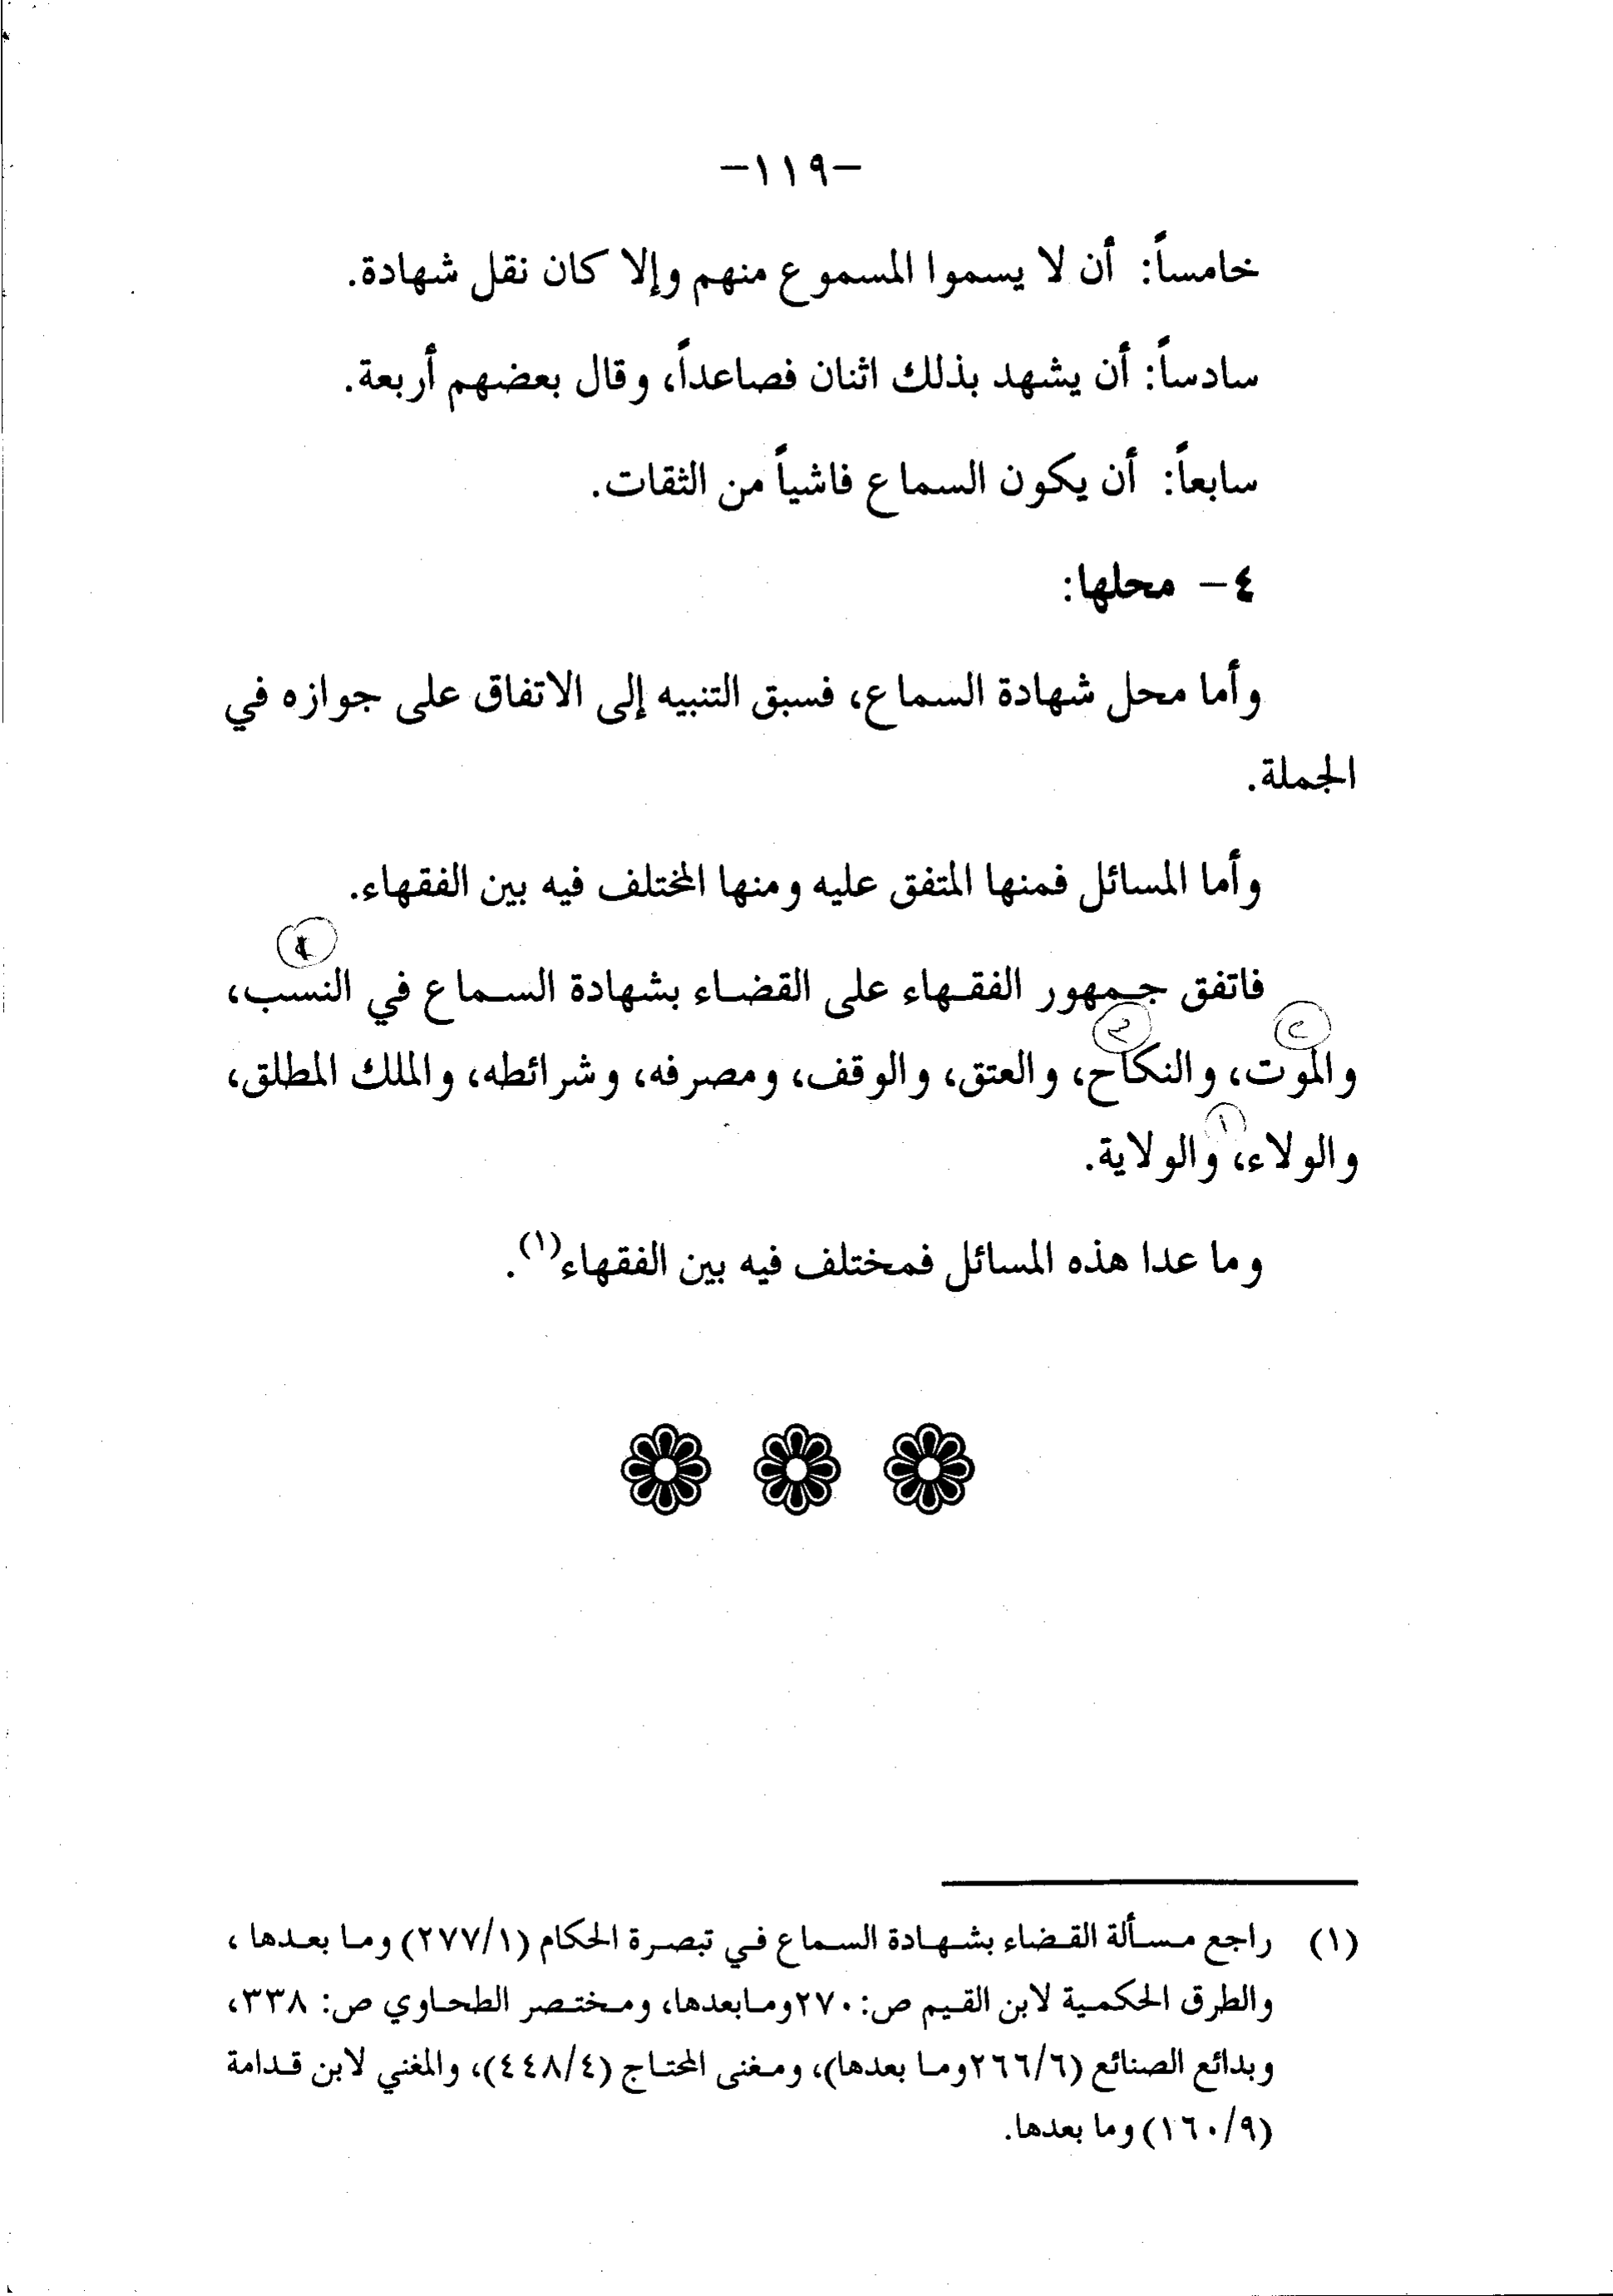 -١١٩-
خامساً: أن لا يسموا المسموع منهم وإلا كان نقل شهادة.
سادساً: أن يشهد بذلك اثنان فصاعداً، وقال بعضهم أربعة.
سابعاً: أن يكون السماع فاشياً من الثقات.
٤- محلها:
وأما محل شهادة السماع، فسبق التنبيه إلى الاتفاق على جوازه في
الجملة.
وأما المسائل فمنها المتفق عليه ومنها المختلف فيه بين الفقهاء.
فاتفق جمهور الفقهاء على القضاء بشهادة السماع في النسب،
والموت، والنكاح، والعتق، والوقف، ومصرفه، وشرائطه، والملك المطلق،
١
والولاء، والولاية.
وما عدا هذه المسائل فمختلف فيه بين الفقهاء(١).
(١) راجع مسألة القضاء بشهادة السماع في تبصرة الحكام (٢٧٧/١) وما بعدها،
والطرق الحكمية لابن القيم ص: ٢٧٠ومابعدها، ومختصر الطحاوي ص: ٣٣٨،
وبدائع الصنائع (٢٦٦/٦وما بعدها)، ومغنى المحتاج (٤٤٨/٤)، والمغني لابن قدامة
(١٦٠/٩) وما بعدها.